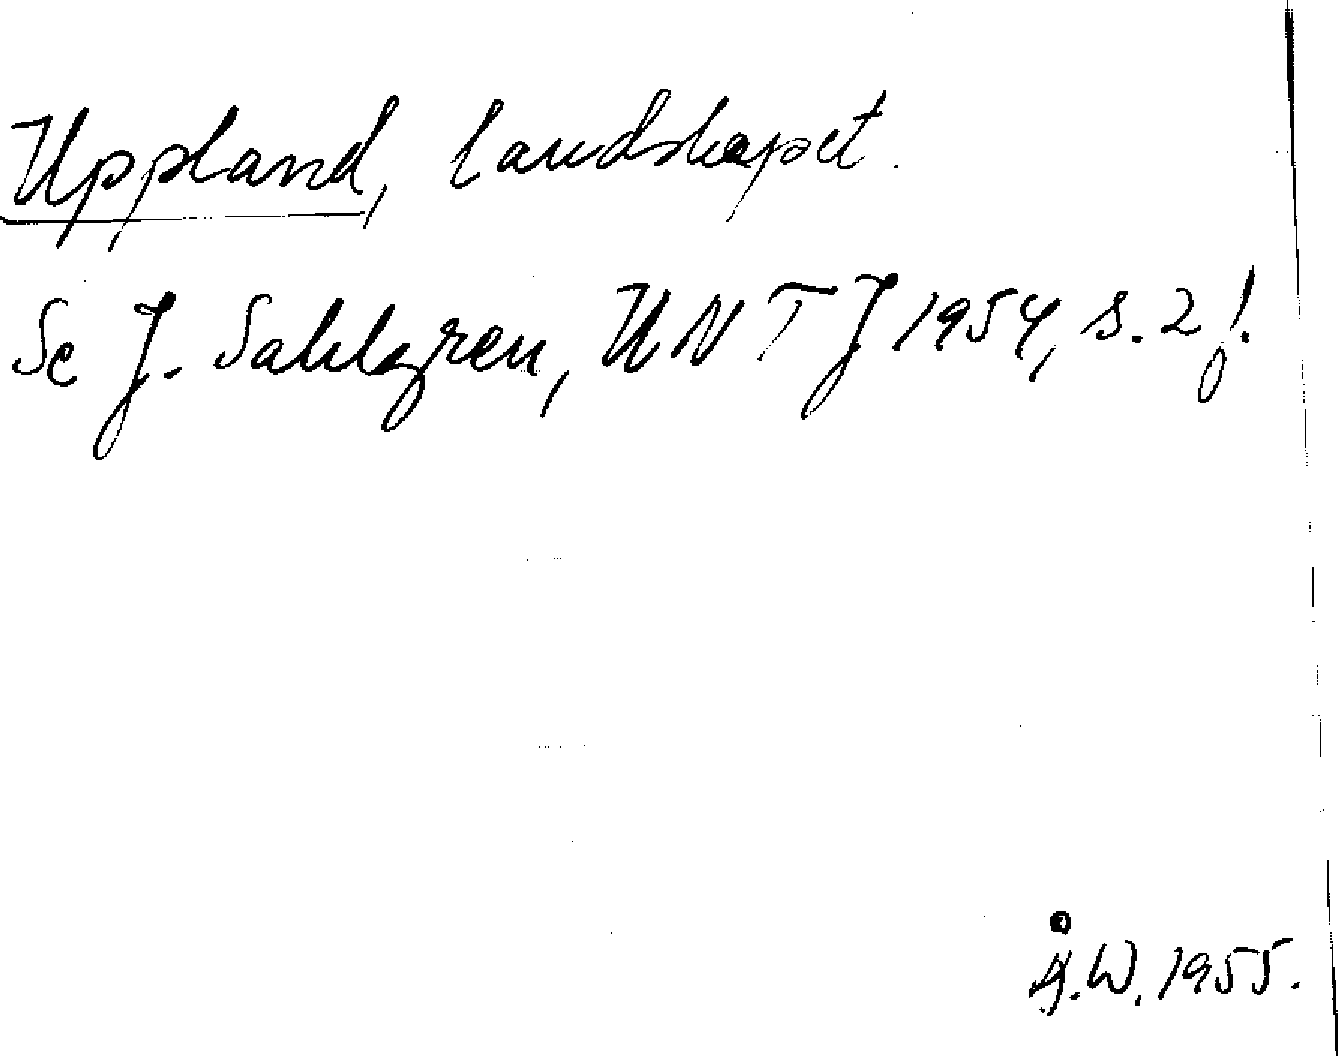 Uppland, landskapet.
Se J. Sahlgren, UNTJ 1954, s. 2 f.
Å.W. 1955.